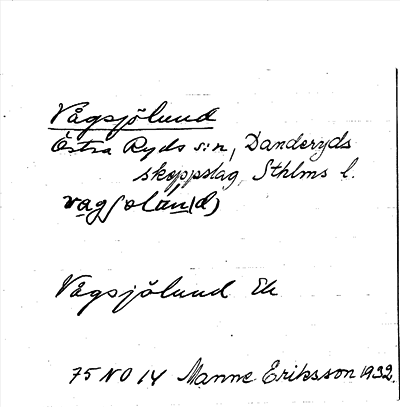 Vågsjölund
Östra Ryds s:n, Danderyds
skeppslag, Sthlms l.
Vågsjölund Ek
75 NO 14 Manne Eriksson 1932.